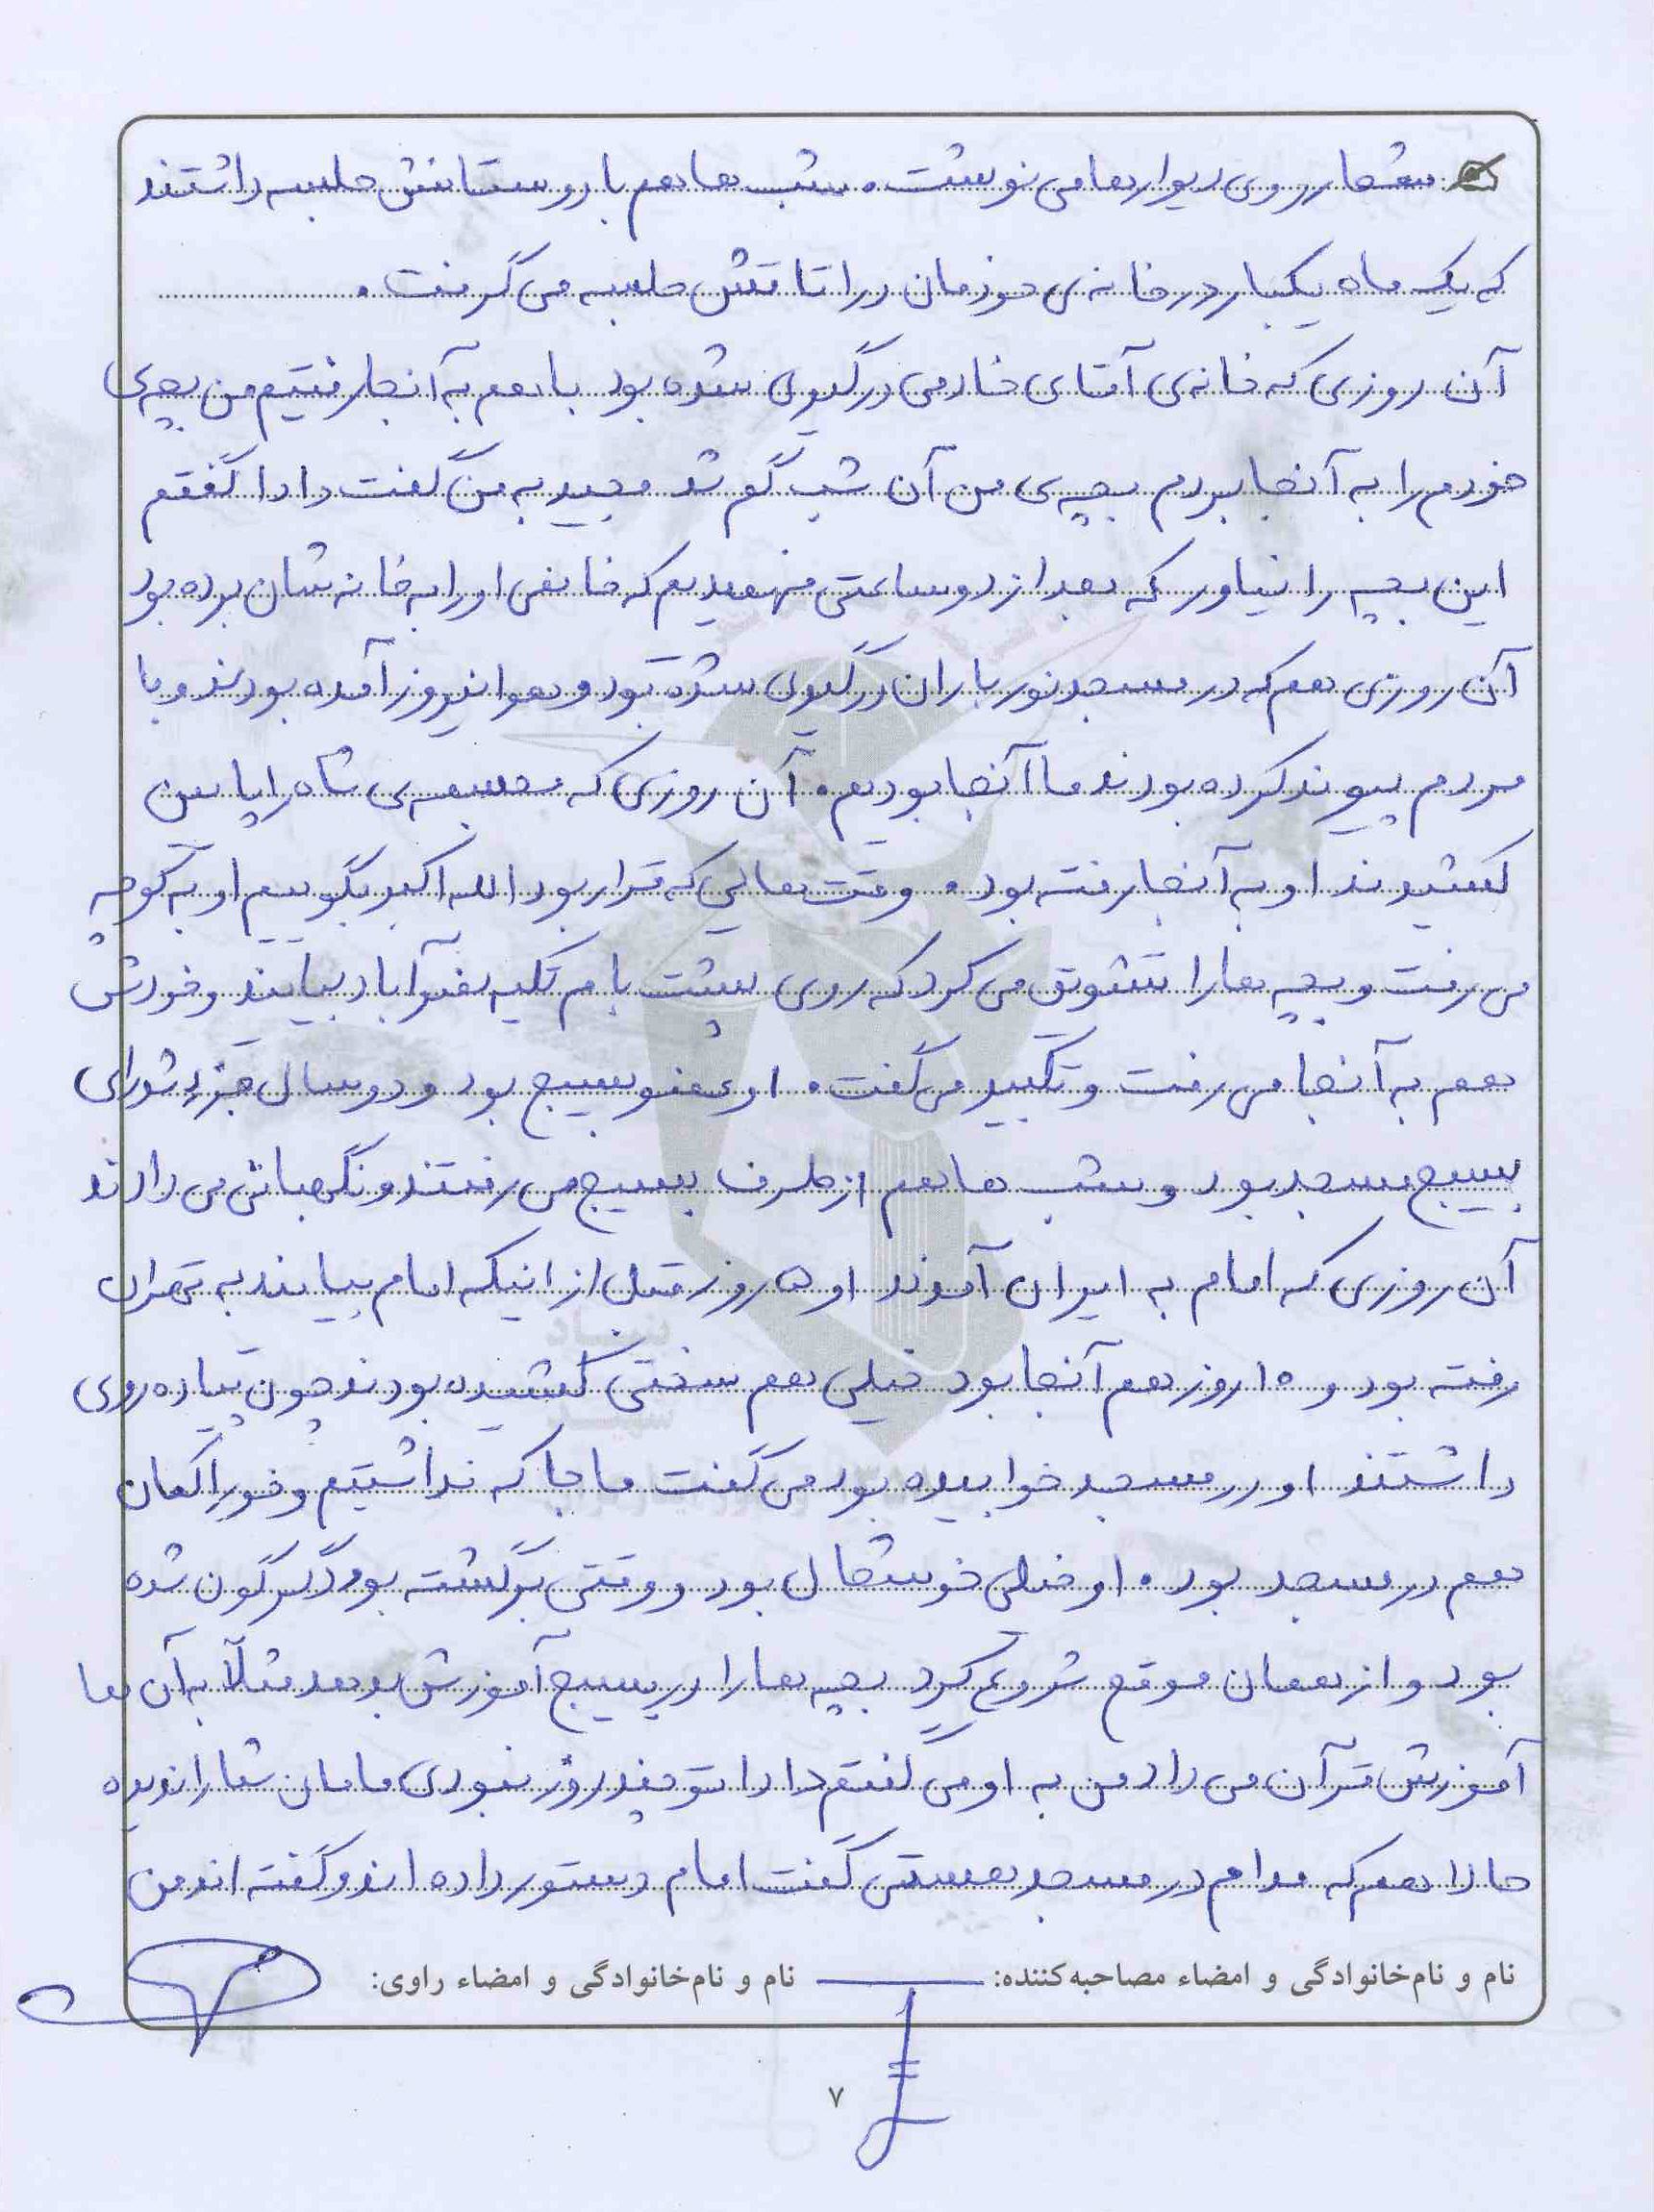 شعار روی دیوارها می نوشت. شب ها هم با دوستانش جلسه داشتند
که یک ماه یکبار در خانه ی خودمان در اتاقش جلسه می گرفت.
آن روزی که خانه ی آقای خادمی درگیری شده بود با هم به آنجا رفتیم من بچه ی
خودم را به آنجا بردم بچه ی من آن شب گم شد مجید به من گفت دادا گفتم
این بچه را نیاور که بعد از دو ساعتی فهمیدیم که خانمی او را به خانه شان برده بود
آن روزی هم که در مسجد نورباران درگیری شده بود و هوا نیروز آمده بودند و با
مردم پیوند کرده بودند ما آنجا بودیم. آن روزی که مجسمه ی شاه را پایین
کشیدند او به آنجا رفته بود. وقت هایی که قرار بود الله اکبر بگوییم او به کوچه
می رفت و بچه ها را تشویق می کرد که روی پشت بام تکیه آباد بیایند و خودش
هم به آنجا می رفت و تکبیر می گفت. او عضو بسیج بود و دو سال جزء شورای
بسیج مسجد بود و شب ها هم از طرف بسیج می رفتند و نگهبانی می دادند
آن روزی که امام به ایران آمدند او ۵ روز قبل از اینکه امام بیایند به تهران
رفته بود و ۱۵ روز هم آنجا بود خیلی هم سختی کشیده بودند چون پیاده روی
داشتند او در مسجد خوابیده بود می گفت ما جا که نداشتیم و خوراکمان
هم در مسجد بود. او خیلی خوشحال بود و وقتی برگشته بود دگرگون شده
بود و از همان موقع شروع کرد بچه ها را در بسیج آموزش بدهد مثلاً به آن ها
آموزش قرآن می داد من به او می گفتم دادا تو چند روز نبودی مامان شما را ندیده
حالا هم که مدام در مسجد هستی گفت امام دستور داده اند و گفته اند من
نام و نام‌خانوادگی و امضاء مصاحبه‌کننده: نام و نام‌خانوادگی و امضاء راوی:
۷